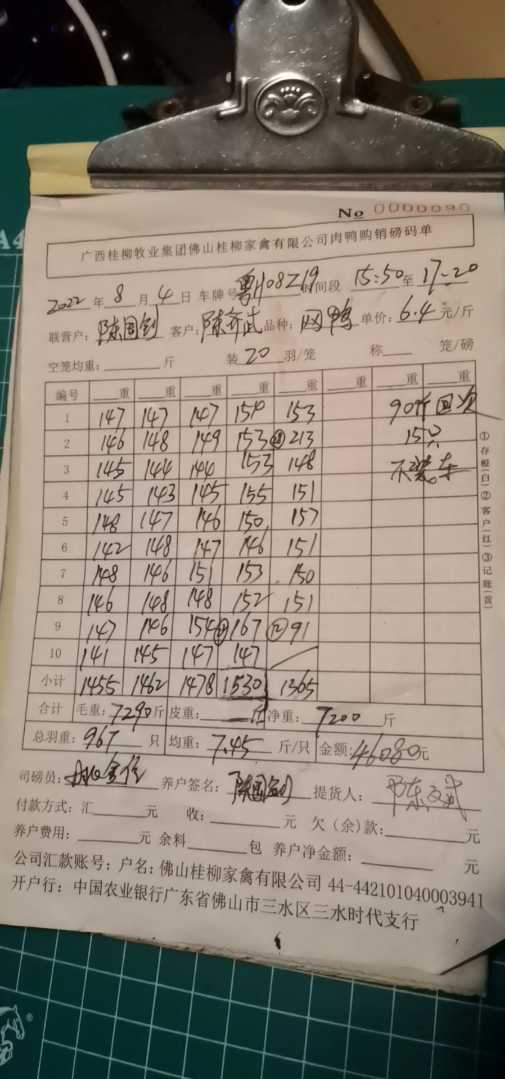 A4
No 0000090
广西桂柳牧业集团佛山桂柳家禽有限公司肉鸭购销磅码单
2022年8月4日 车牌号 粤 时间段 15:50至17-20
联营户: 陈国钊 客户: 陈齐武 品种: 网鸭 单价: 6.4元/斤
空笼均重: 斤 装20羽/笼 称 笼/磅
编号 重 重 重 重 重 重 重 重
1 147 147 147 150 153 90斤回次
2 146 148 149 153 213 15只
3 145 144 144 153 148 不装车
4 145 143 145 155 151
5 148 147 146 150 157
6 142 148 147 146 151
7 148 146 151 153 150
8 146 148 148 152 151
9 147 146 154 167 91
10 141 145 147 147
小计 1455 1462 1478 1530 1365
合计 毛重: 7290斤 皮重: 斤 净重: 7200斤
总羽重: 967只 均重: 7.45斤/只 金额: 46080元
司磅员: 养户签名: 陈国钊 提货人:
付款方式: 汇 元 收: 元 欠(余)款: 元
养户费用: 元 余料 包 养户净金额: 元
公司汇款账号: 户名: 佛山桂柳家禽有限公司 44-442101040003941
开户行: 中国农业银行广东省佛山市三水区三水时代支行
①存根(白)②客户(红)③记账(黄)